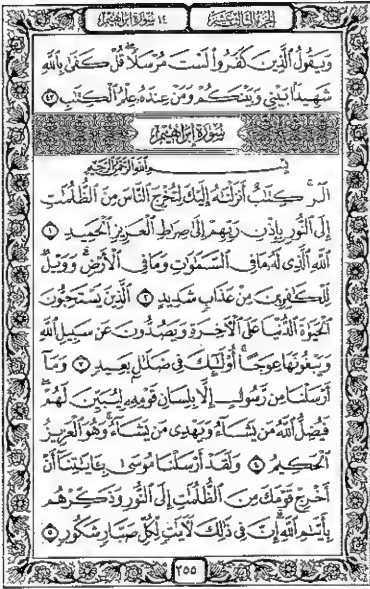 الجزء الثالث عشر
١٤ سورة إبراهيم
وَيَقُولُ الَّذِينَ كَفَرُوا لَسْتَ مُرْسَلًا قُلْ كَفَىٰ بِاللَّهِ
شَهِيدًا بَيْنِي وَبَيْنَكُمْ وَمَنْ عِندَهُ عِلْمُ الْكِتَٰبِ ٤٣
سُورَةُ إِبْرَاهِيم
بِسْمِ اللَّهِ الرَّحْمَٰنِ الرَّحِيمِ
الٓر كِتَٰبٌ أَنزَلْنَٰهُ إِلَيْكَ لِتُخْرِجَ النَّاسَ مِنَ الظُّلُمَٰتِ
إِلَى النُّورِ بِإِذْنِ رَبِّهِمْ إِلَىٰ صِرَٰطِ الْعَزِيزِ الْحَمِيدِ ١
اللَّهِ الَّذِي لَهُ مَا فِي السَّمَٰوَٰتِ وَمَا فِي الْأَرْضِ وَوَيْلٌ
لِّلْكَٰفِرِينَ مِنْ عَذَابٍ شَدِيدٍ ٢ الَّذِينَ يَسْتَحِبُّونَ
الْحَيَوٰةَ الدُّنْيَا عَلَى الْآخِرَةِ وَيَصُدُّونَ عَن سَبِيلِ اللَّهِ
وَيَبْغُونَهَا عِوَجًا أُو۟لَٰٓئِكَ فِي ضَلَٰلٍ بَعِيدٍ ٣ وَمَآ
أَرْسَلْنَا مِن رَّسُولٍ إِلَّا بِلِسَانِ قَوْمِهِ لِيُبَيِّنَ لَهُمْ
فَيُضِلُّ اللَّهُ مَن يَشَآءُ وَيَهْدِي مَن يَشَآءُ وَهُوَ الْعَزِيزُ
الْحَكِيمُ ٤ وَلَقَدْ أَرْسَلْنَا مُوسَىٰ بِـَٔايَٰتِنَآ أَنْ
أَخْرِجْ قَوْمَكَ مِنَ الظُّلُمَٰتِ إِلَى النُّورِ وَذَكِّرْهُم
بِأَيَّىٰمِ اللَّهِ إِنَّ فِي ذَٰلِكَ لَآيَٰتٍ لِّكُلِّ صَبَّارٍ شَكُورٍ ٥
٢٥٥